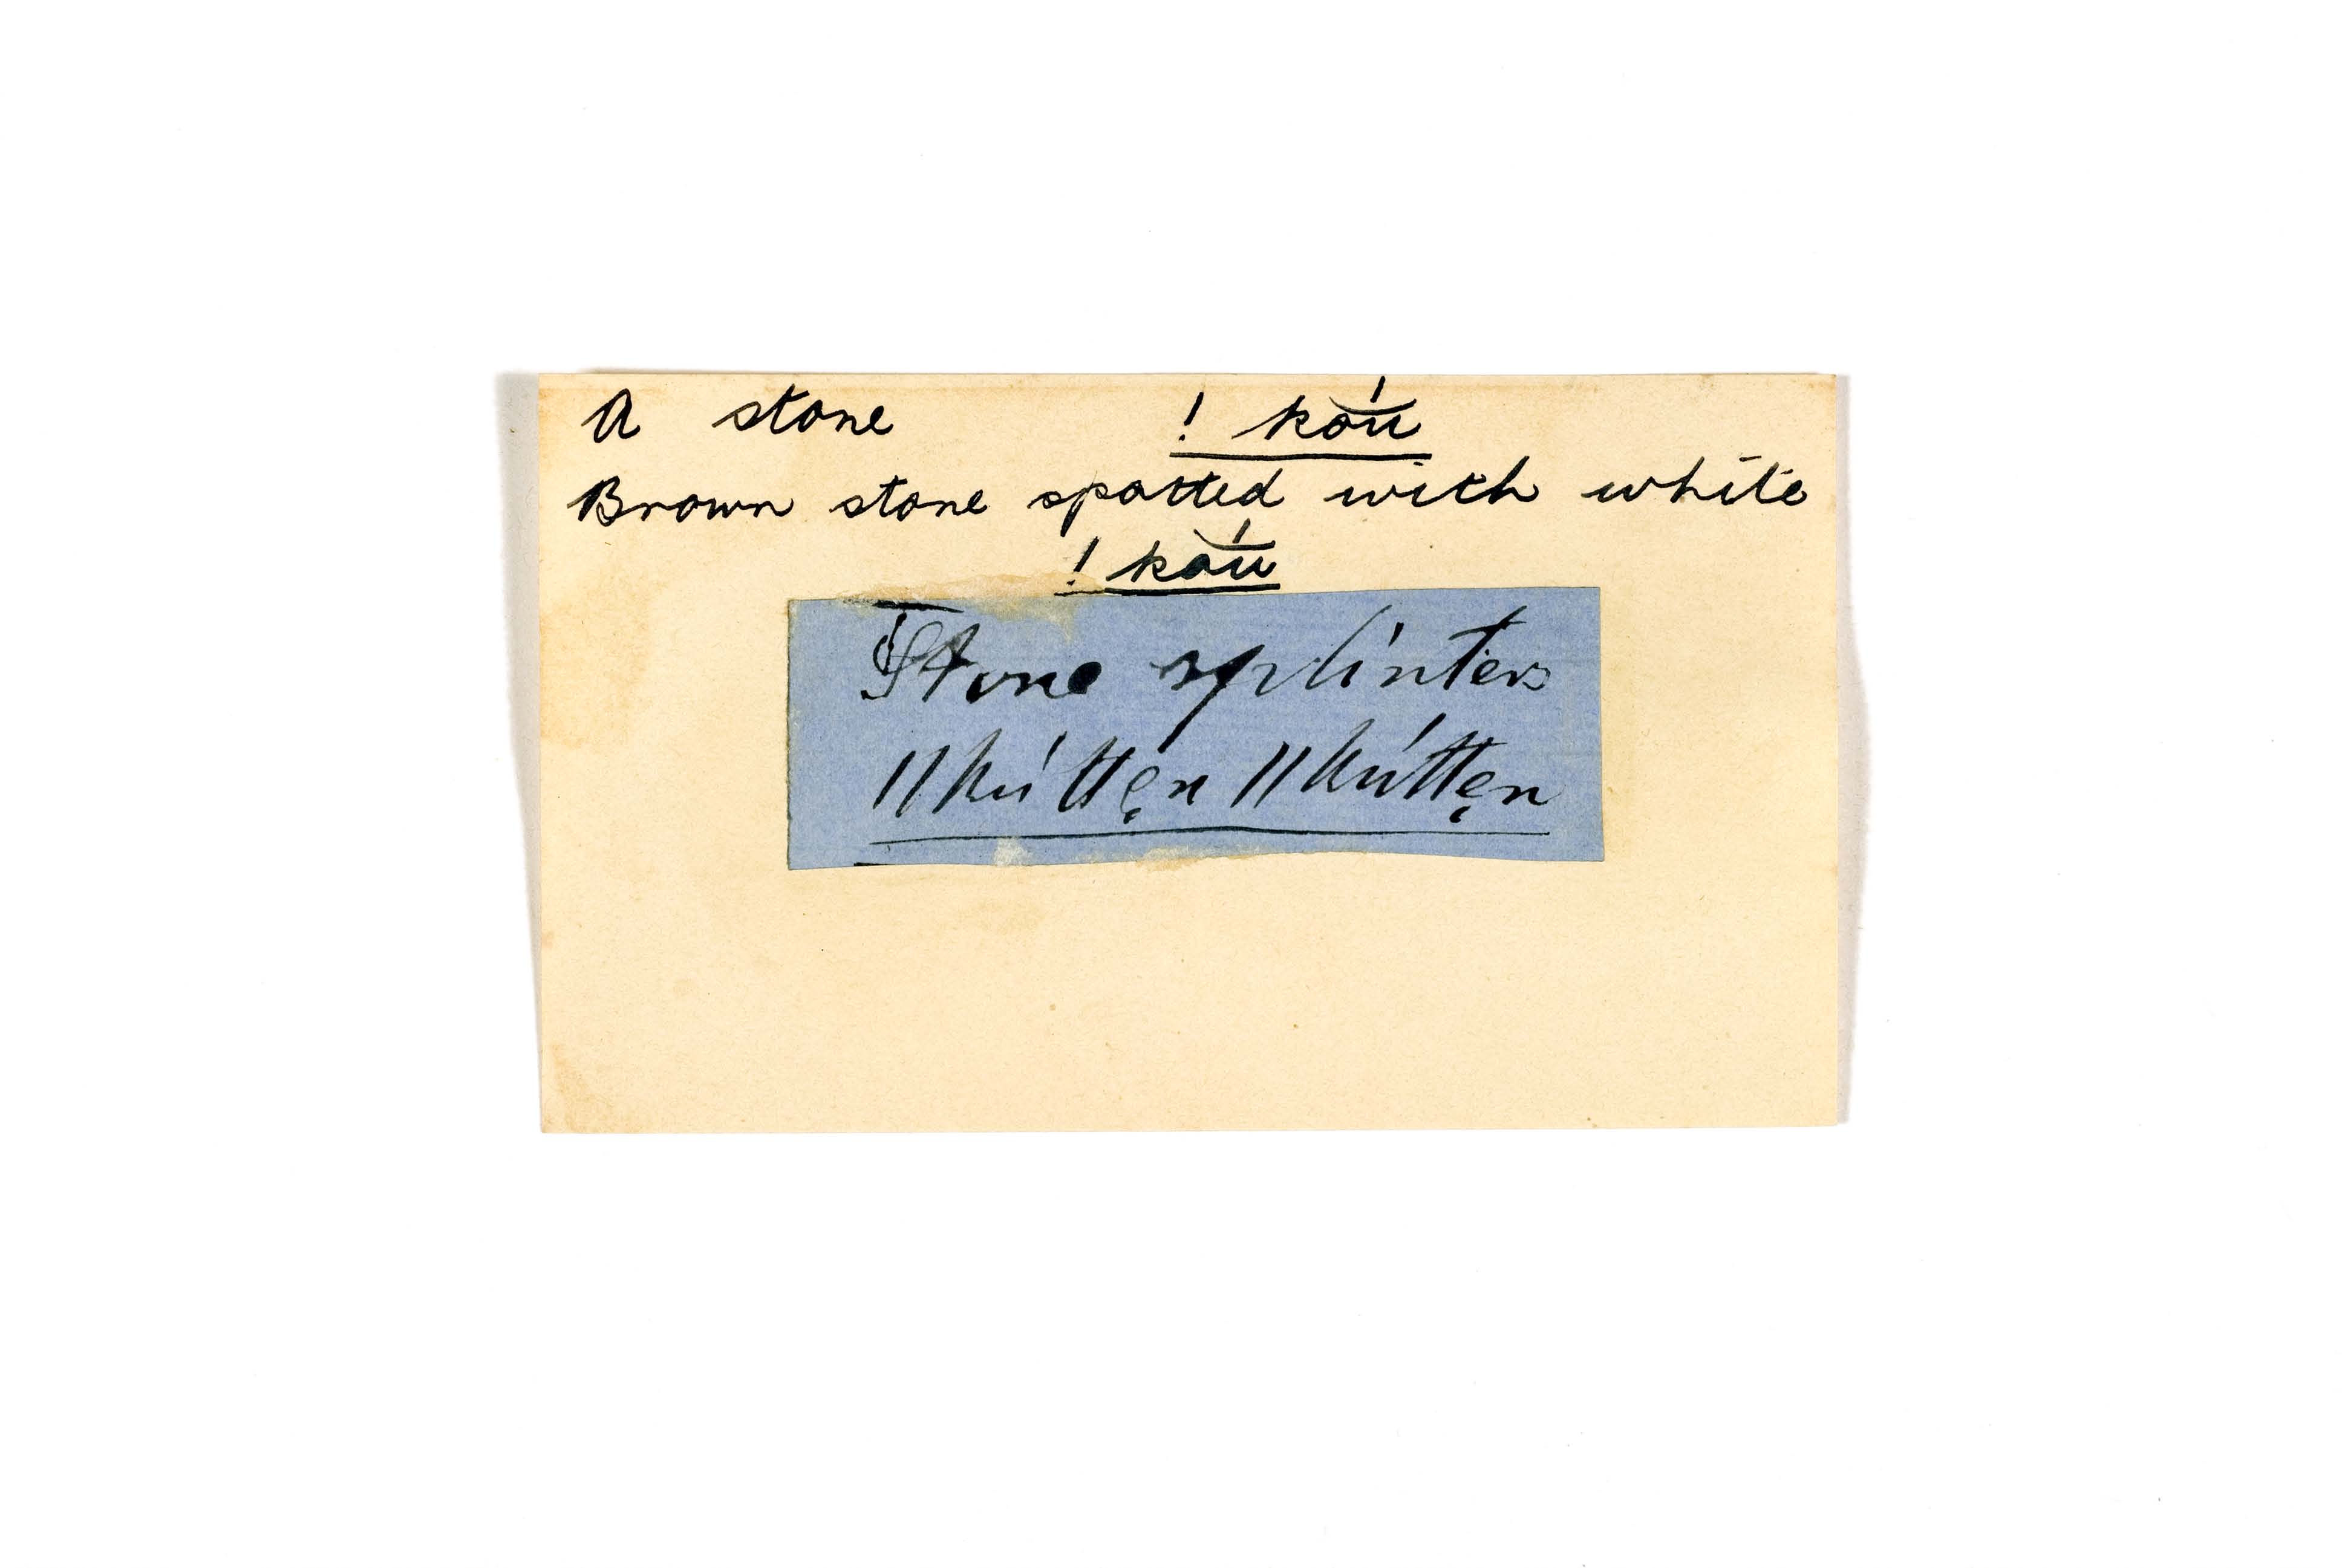 A stone ! kaú̆
Brown stone spotted with white
! kaú̆
Stone splinters
||kúttęn ||kúttęn